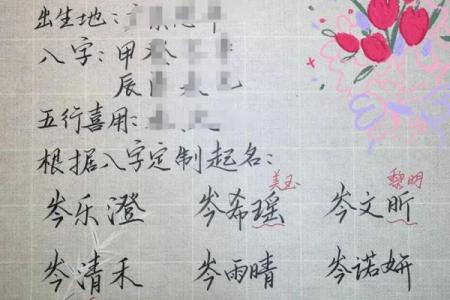 出生地:
八字: 甲
辰
五行喜用:
根据八字定制起名:
美玉 黎明
岑乐澄 岑希瑶 岑文昕
岑清禾 岑雨晴 岑诺妍